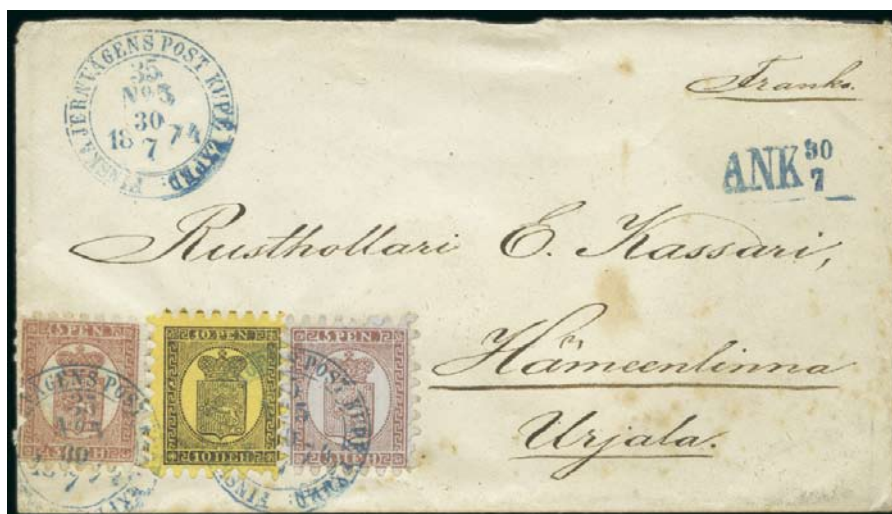 FINSKA JERNVÄGENS POST KUPÉ EXPED:
35
No 3,
30
18 7 74
Franko.
ANK 30
7
Rusthollari E. Kassari,
Hämeenlinna
Urjala.
5 PEN
10 PEN.
10 ПЕН.
5 PEN.
5 ПЕН.
POST KUPÉ